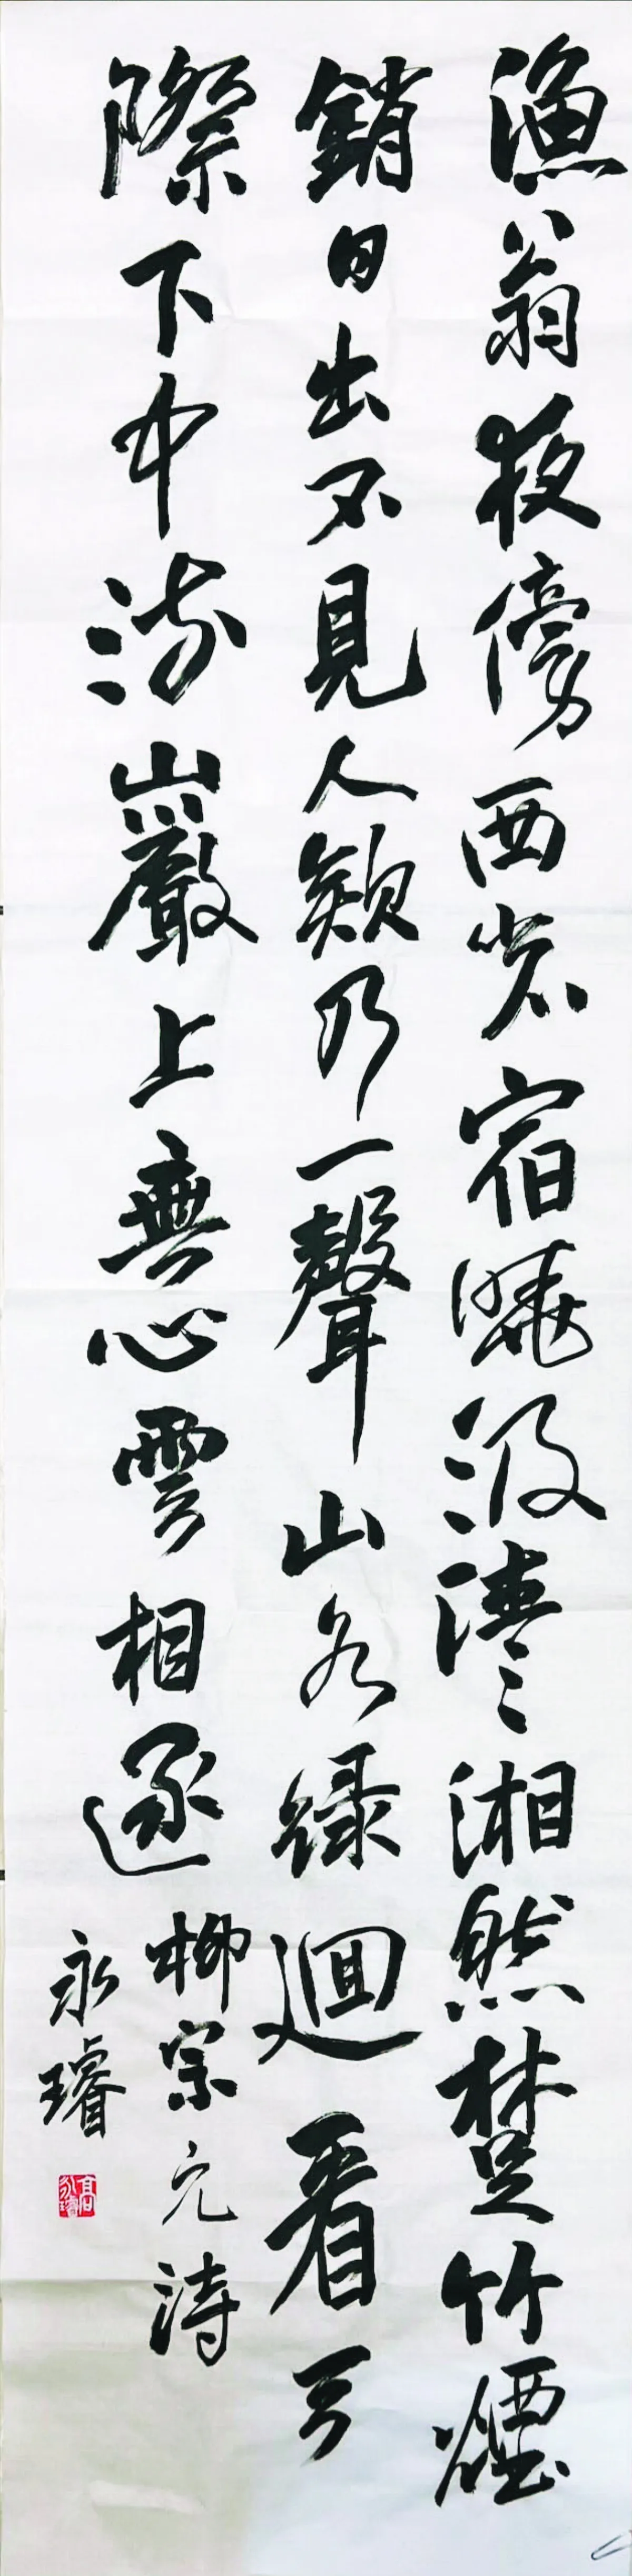 漁翁夜傍西岩宿曉汲清湘然楚竹煙
銷日出不見人欸乃一聲山水綠迴看天
際下中流巖上無心雲相逐柳宗元詩
永璿
高永璿